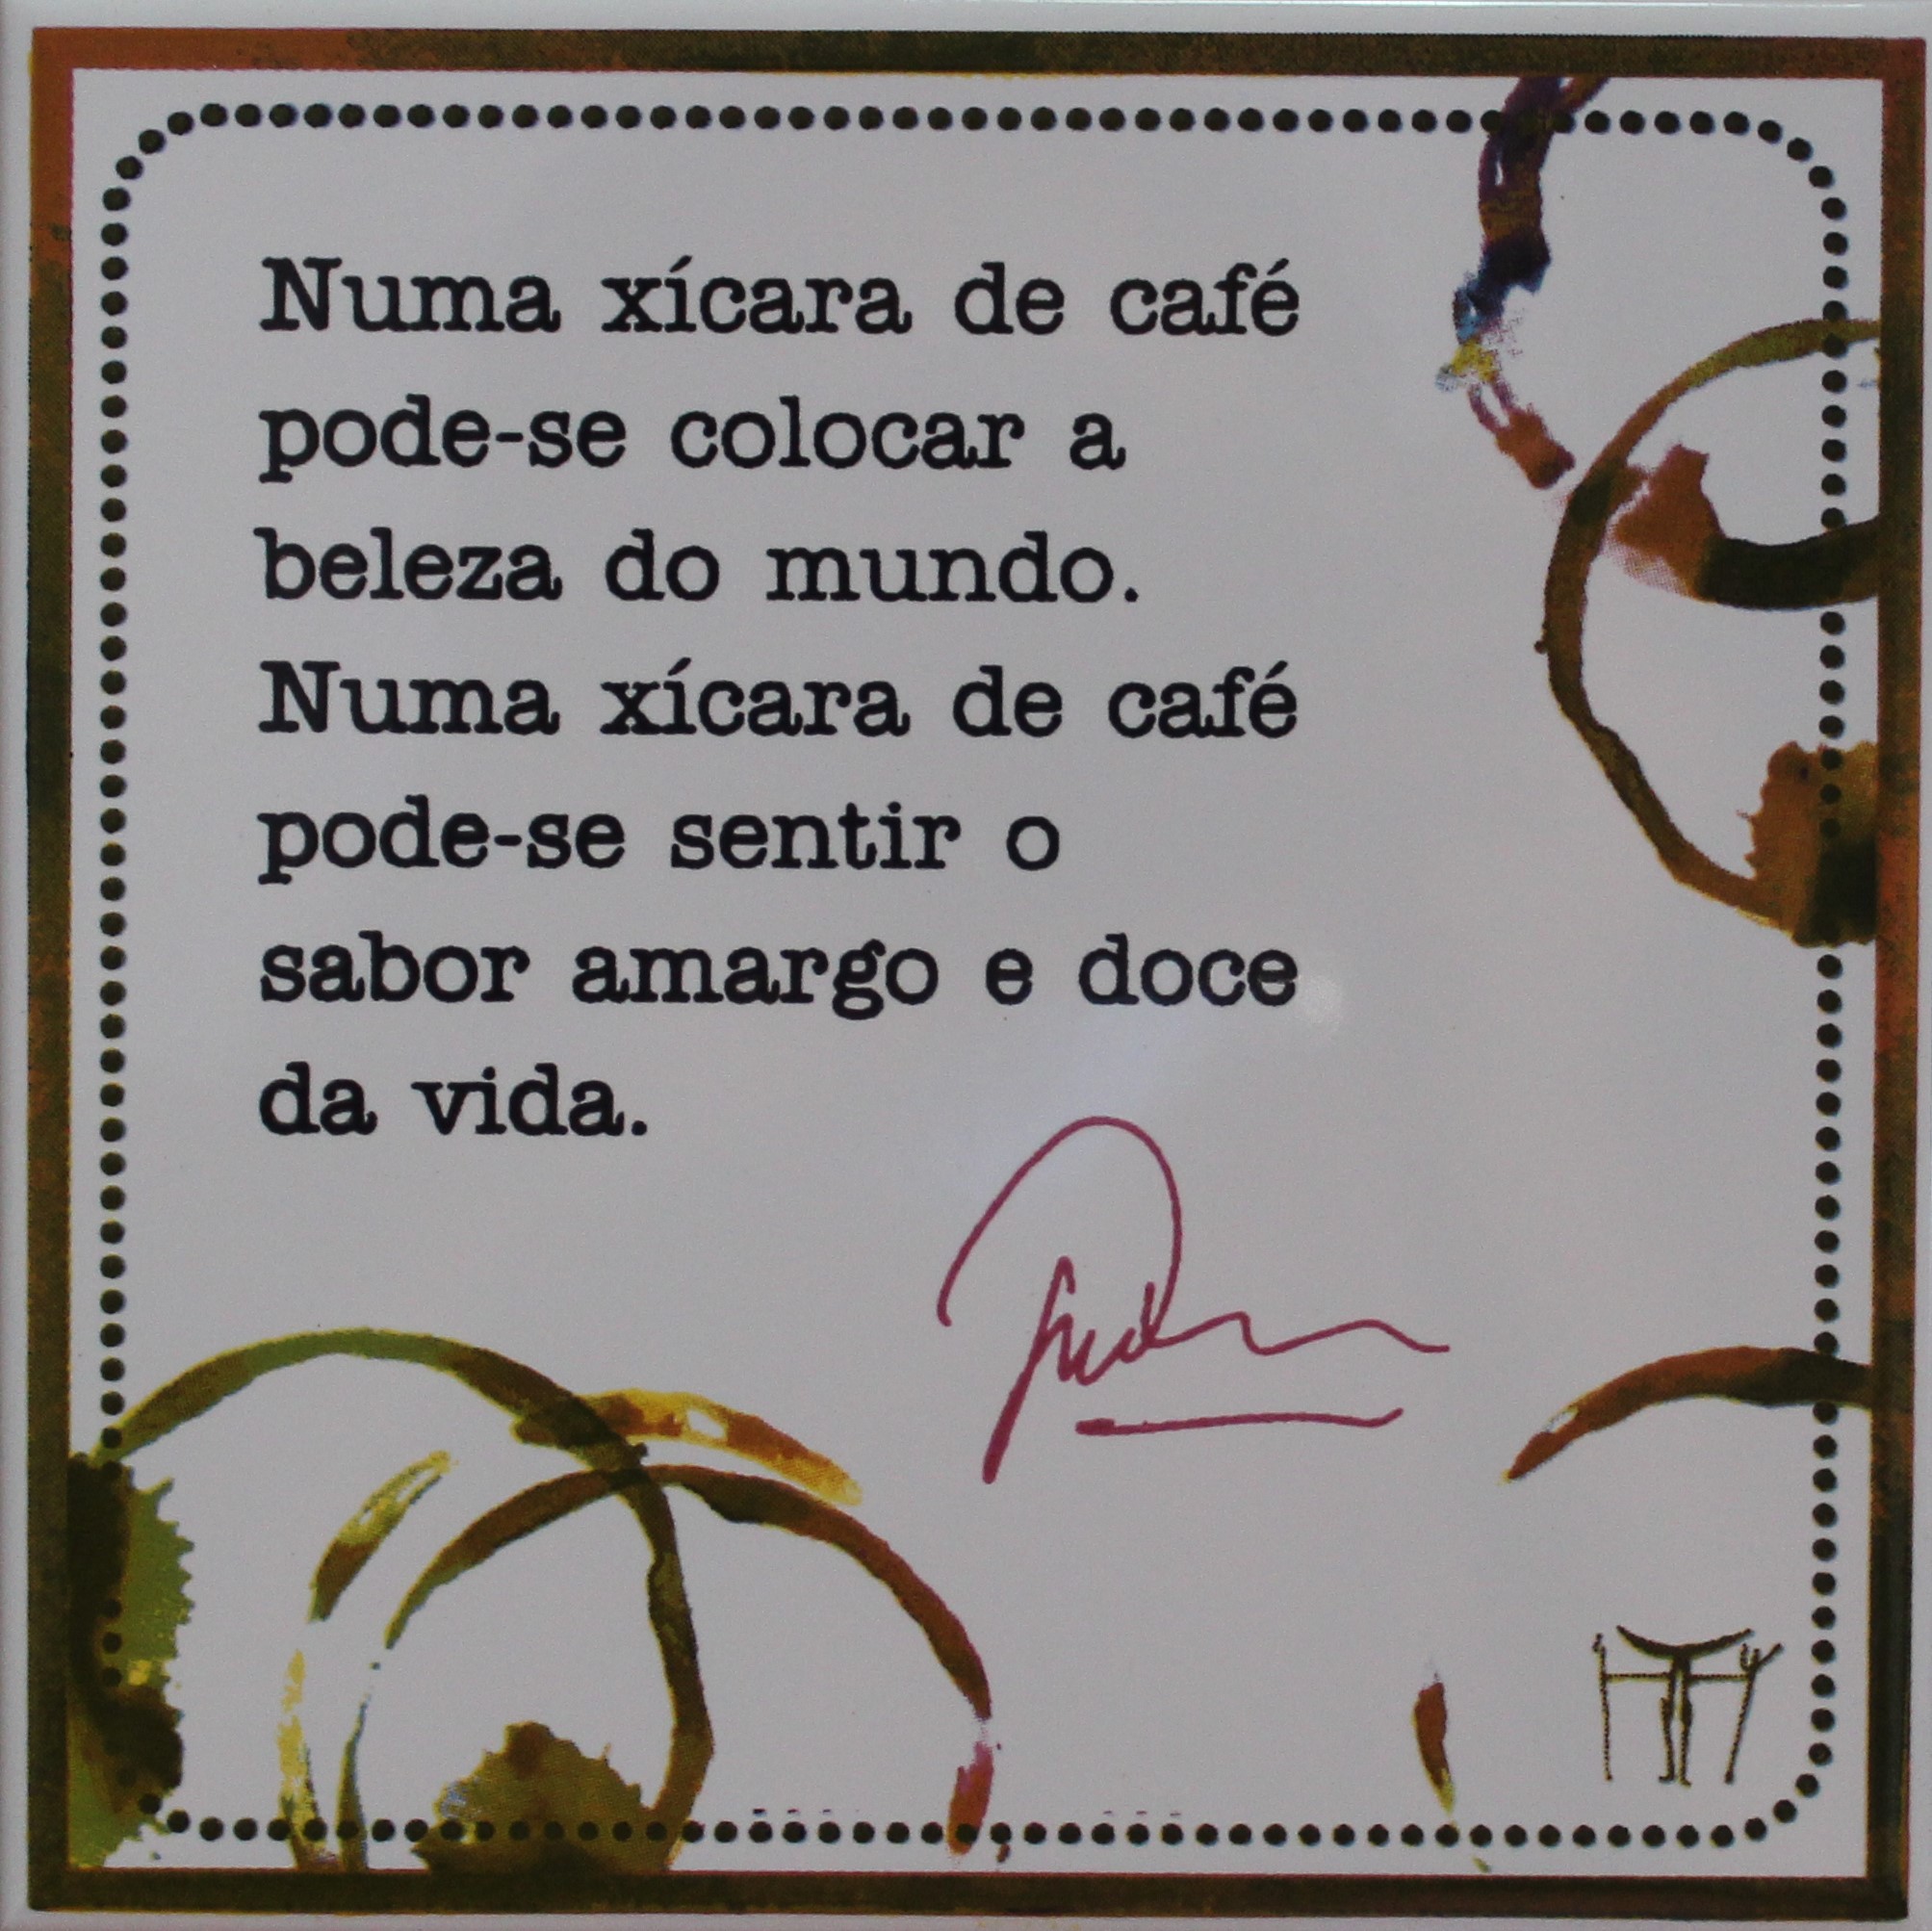 Numa xícara de café
pode-se colocar a
beleza do mundo.
Numa xícara de café
pode-se sentir o
sabor amargo e doce
da vida.